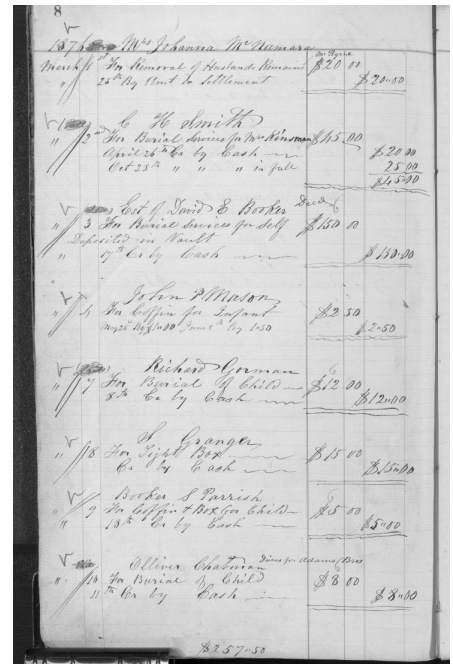 8
Mrs Johanna McNamara
March 1st For Removal of Husbands Remains $20 00
" 25th By Rent in Settlement $20.00
C H Smith
" 2nd For Burial Services for Mrs Kinsman $45.00
April 26th Cr by Cash $20 00
Oct 28th " " " in full 25.00
$45.00
Est of David E Booker Decd
" 3 For Burial Services for Self $150 00
Deposited in Vault
" 17th Cr by Cash $150.00
John P Mason
" 4 For Coffin for Infant $2 50
$2.50
Richard Gorman
" 7 For Burial of Child $12 00
8th Cr by Cash $12.00
Granger
" 8 For Box $15 00
Cr by Cash $15.00
Booker S Parrish
" 9 For Coffin & Box for Child $5 00
" 18th Cr by Cash $5.00
Olliver Chatman
" 10 For Burial of Child $8 00
11th Cr by Cash $8.00
$257.50